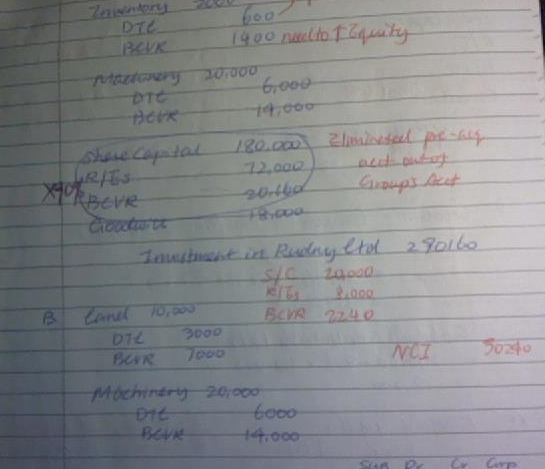 Inventory 2000
DTL 600
BCVR 1400 need to ↑ Equity
Machinery 20,000
DTL 6,000
BCVR 14,000
Share Capital 180,000 Eliminated pre-acq
R/Es 72,000 acct out of
X90% BCVR 20,160 Group's Acct
Goodwill 18,000
Investment in Rudny Ltd 290160
S/C 20,000
R/Es 8,000
B Land 10,000 BCVR 2240
DTL 3000
BCVR 7000 NCI 30240
Machinery 20,000
DTL 6000
BCVR 14,000
Dr Cr